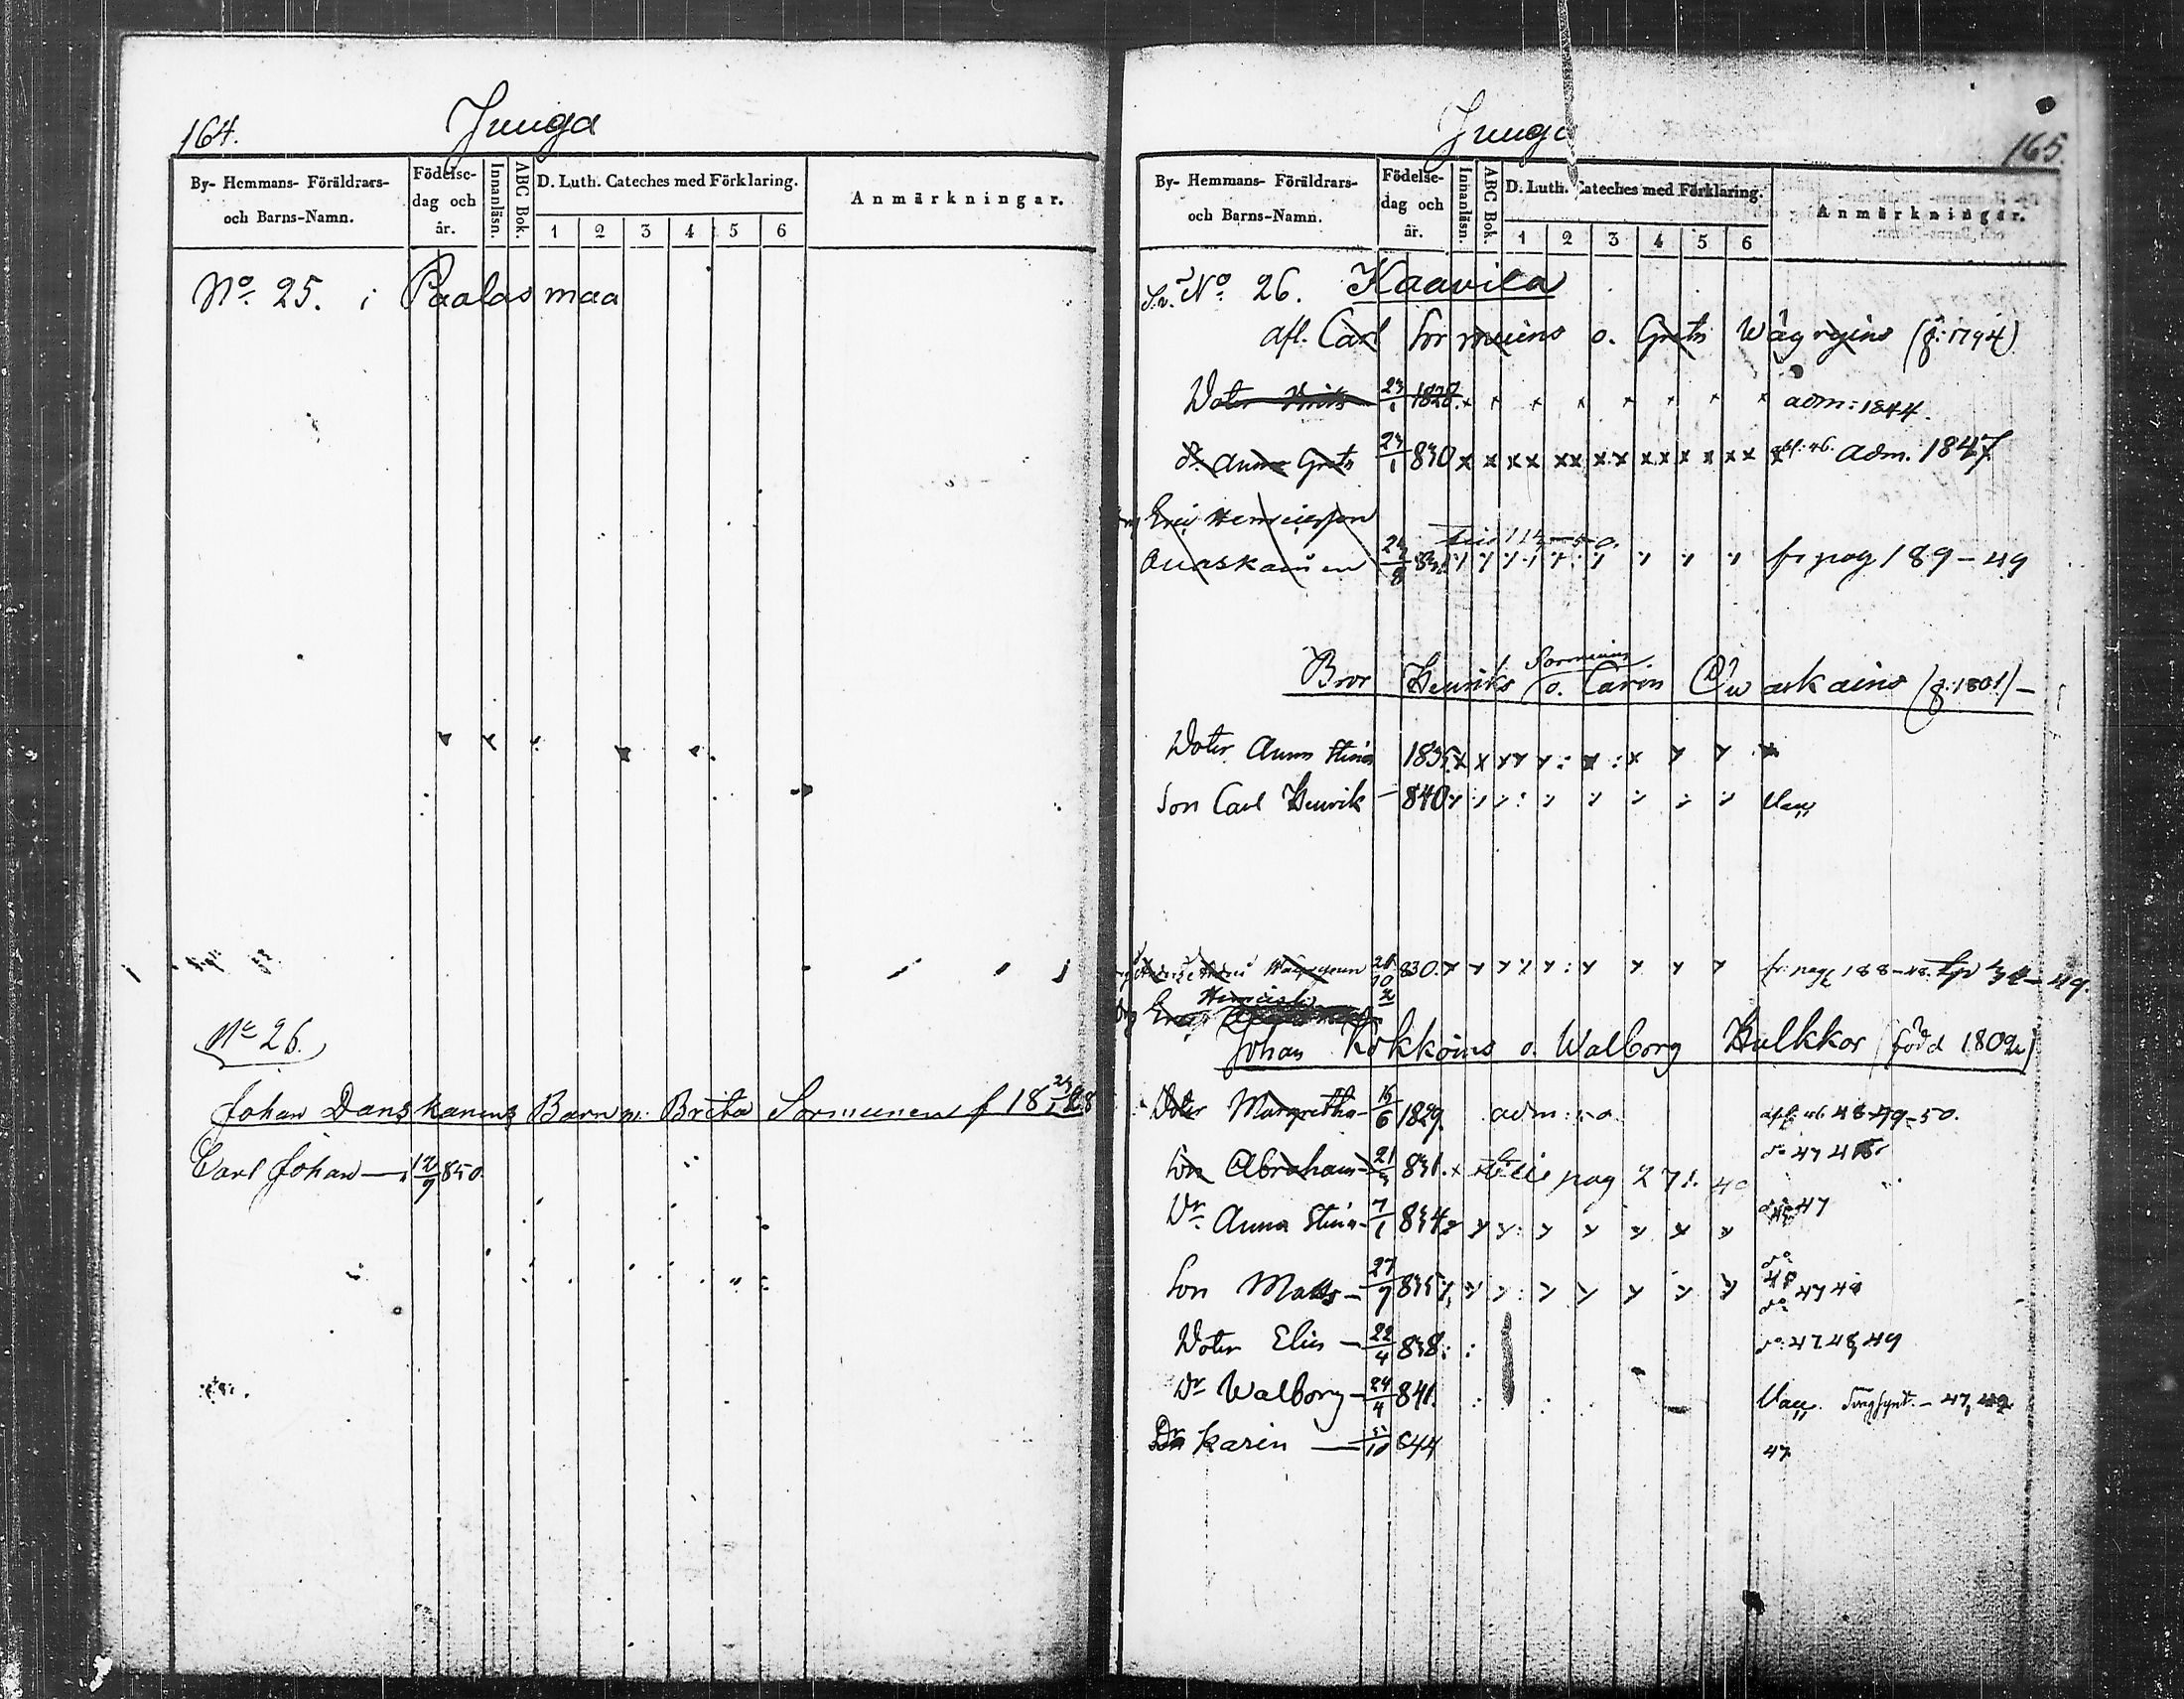 164.
Juuga
By- Hemmans- Föräldrars-
och Barns-Namn.
Födelse-
dag och
år.
Innanläsn.
ABC Bok.
D. Luth. Cateches med Förklaring.
1 2 3 4 5 6
Anmärkningar.
No. 25. i Paalasmaa
No 26.
Johan Danskanens Barn m: Brita Sormunen f 18 23/1 28
Carl Johan — 12/9 850.
Juuga
165.
By- Hemmans- Föräldrars-
och Barns-Namn.
Födelse-
dag och
år.
Innanläsn.
ABC Bok.
D. Luth. Cateches med Förklaring.
1 2 3 4 5 6
Anmärkningar.
No. 26. Kaavila
afl. Carl Sormuins o. Greta Wäyryins (f: 1794)
Doter 23/1 1828. x x x x x x x x adm: 1844.
dr. Anna Greta 23/1 830 x x xx xx xx xx x x xx x adm. 1847
Eric Henricsson
Ovaskainen 24/8 fr pag 189-49
Bror Henriks Sormuins o. Carin Ovaskains (f: 1801) —
Doter Anna Stina
Son Carl Henrik — 840
830. fr. pag 188-48. 49.
Johan Kokkoins o. Walborg Hulkkor (född 1802)
Doter Margretha 16/6 1829. adm: 50. 48-49-50.
Son Abraham 21 831. x pag 271.
Dr Anna Stina 7/1 834 47
Son Matts — 27/9 835
Doter Elin — 22/4 838. do: 47 48, 49
Dr Walborg — 24/4 841. Vacc. 47, 49
Dr Karin — 5/10 844 47